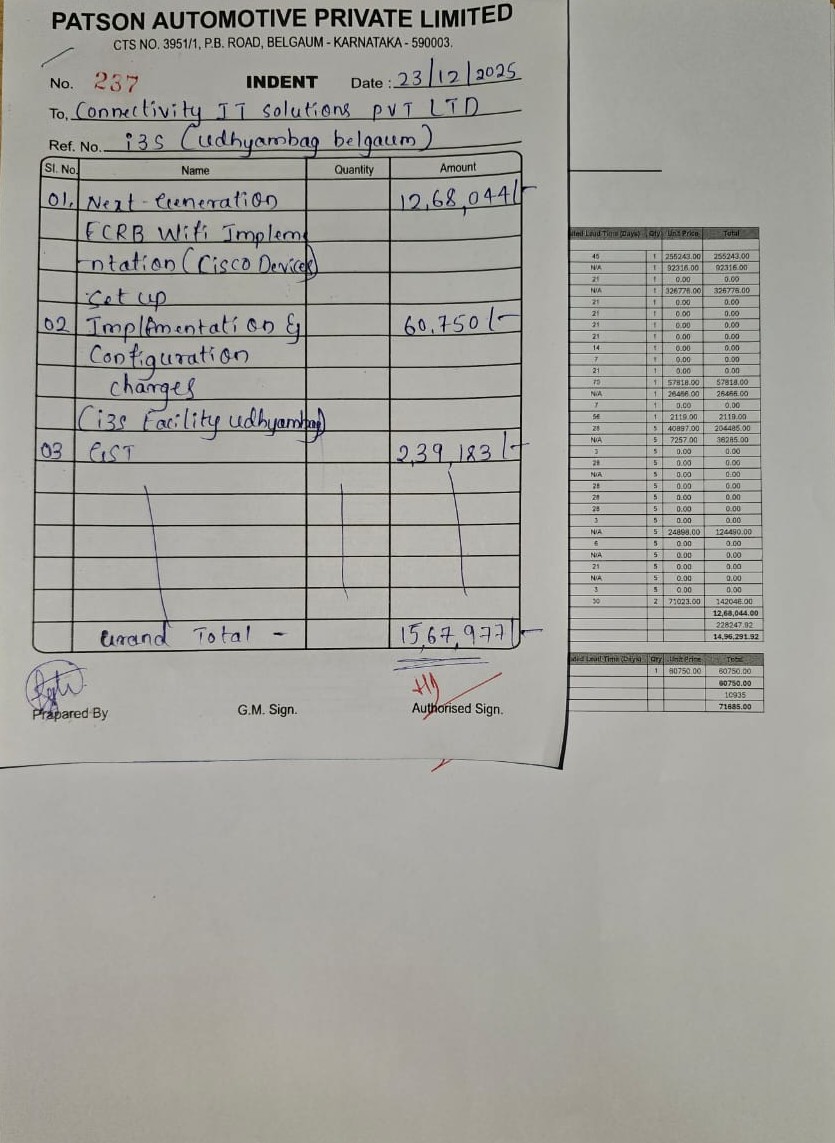 PATSON AUTOMOTIVE PRIVATE LIMITED
CTS NO. 3951/1, P.B. ROAD, BELGAUM - KARNATAKA - 590003.
No. 237 INDENT Date : 23/12/2025
To, Connectivity IT Solutions PVT LTD
Ref. No. i3S (udhyambag belgaum)
Sl. No. Name Quantity Amount
01. Next-Generation 12,68,044/-
FCRB Wifi Implem
ntation (Cisco Devices)
Set up
02 Implementation & 60,750/-
Configuration
charges
(i3s Facility udhyambag)
03 GST 2,39,183/-
Grand Total - 15,67,977/-
Prapared By G.M. Sign. Authorised Sign.
Lead Time (Days) Qty Unit Price Total
45 1 255243.00 255243.00
N/A 1 92316.00 92316.00
21 1 0.00 0.00
N/A 1 326776.00 326776.00
21 1 0.00 0.00
21 1 0.00 0.00
21 1 0.00 0.00
21 1 0.00 0.00
14 1 0.00 0.00
7 1 0.00 0.00
21 1 0.00 0.00
1 57818.00 57818.00
N/A 1 26466.00 26466.00
7 1 0.00 0.00
56 1 2119.00 2119.00
28 5 40897.00 204485.00
N/A 5 7257.00 36285.00
3 5 0.00 0.00
28 5 0.00 0.00
N/A 5 0.00 0.00
28 5 0.00 0.00
28 5 0.00 0.00
28 5 0.00 0.00
3 5 0.00 0.00
N/A 5 24898.00 124490.00
6 5 0.00 0.00
N/A 5 0.00 0.00
21 5 0.00 0.00
N/A 5 0.00 0.00
3 5 0.00 0.00
30 2 71023.00 142046.00
12,68,044.00
228247.92
14,96,291.92
Lead Time (Days) Qty Unit Price Total
1 60750.00 60750.00
60750.00
10935
71685.00